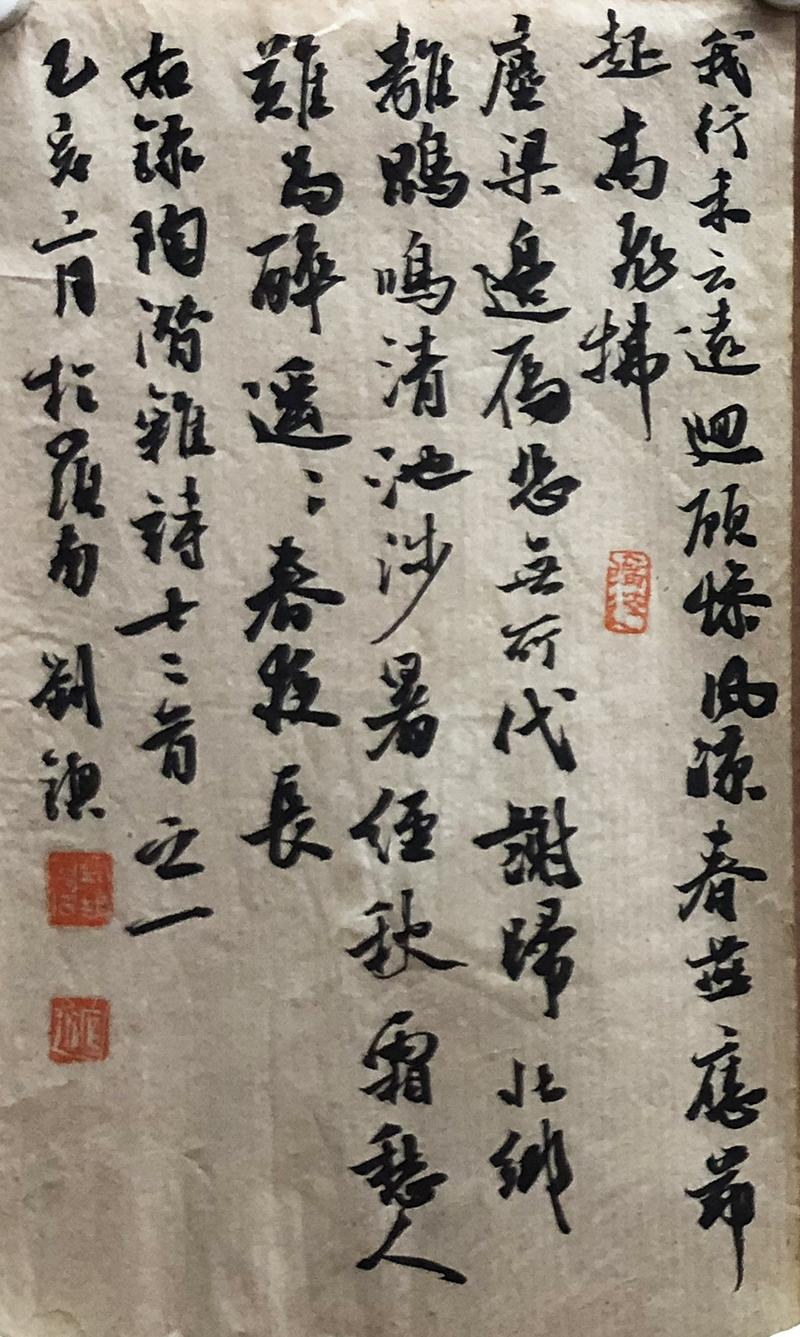 我行未云遠迴顧慘風涼春燕應節
起高飛拂
塵梁邊雁悲無所代謝歸北鄉
離鵾鳴清池涉暑經秋霜愁人
難為辭遥々春夜長
右録陶潛雜詩十二首之一
乙亥二月於 劉鎮